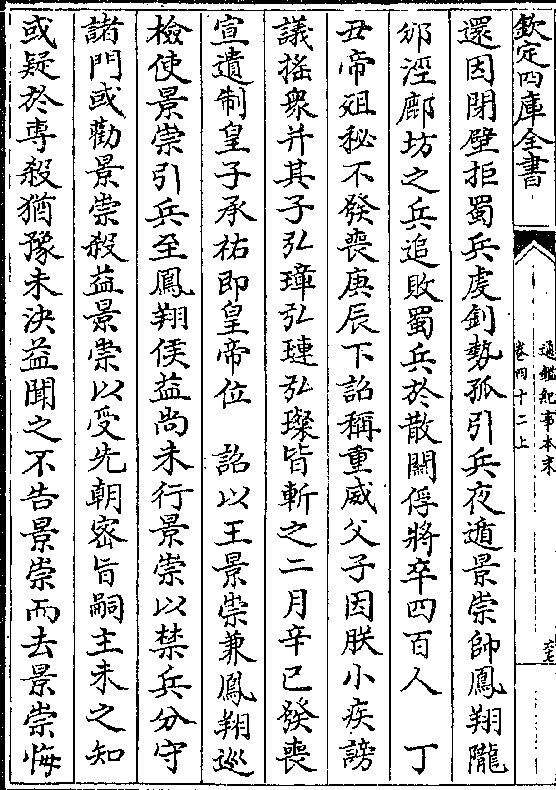 欽定四庫全書
通鑑紀事本末
卷四十二上
還因閉壁拒蜀兵虔釗勢孤引兵夜遁景崇帥鳳翔隴
邠涇鄜坊之兵追敗蜀兵於散關俘將卒四百人　丁
丑帝殂秘不發喪庚辰下詔稱重威父子因朕小疾謗
議搖衆并其子弘璋弘璉弘璨皆斬之二月辛巳發喪
宣遺制皇子承祐即皇帝位　詔以王景崇兼鳳翔巡
檢使景崇引兵至鳳翔侯益尚未行景崇以禁兵分守
諸門或勸景崇殺益景崇以受先朝密旨嗣主未之知
或疑於専殺猶豫未決益聞之不告景崇而去景崇悔